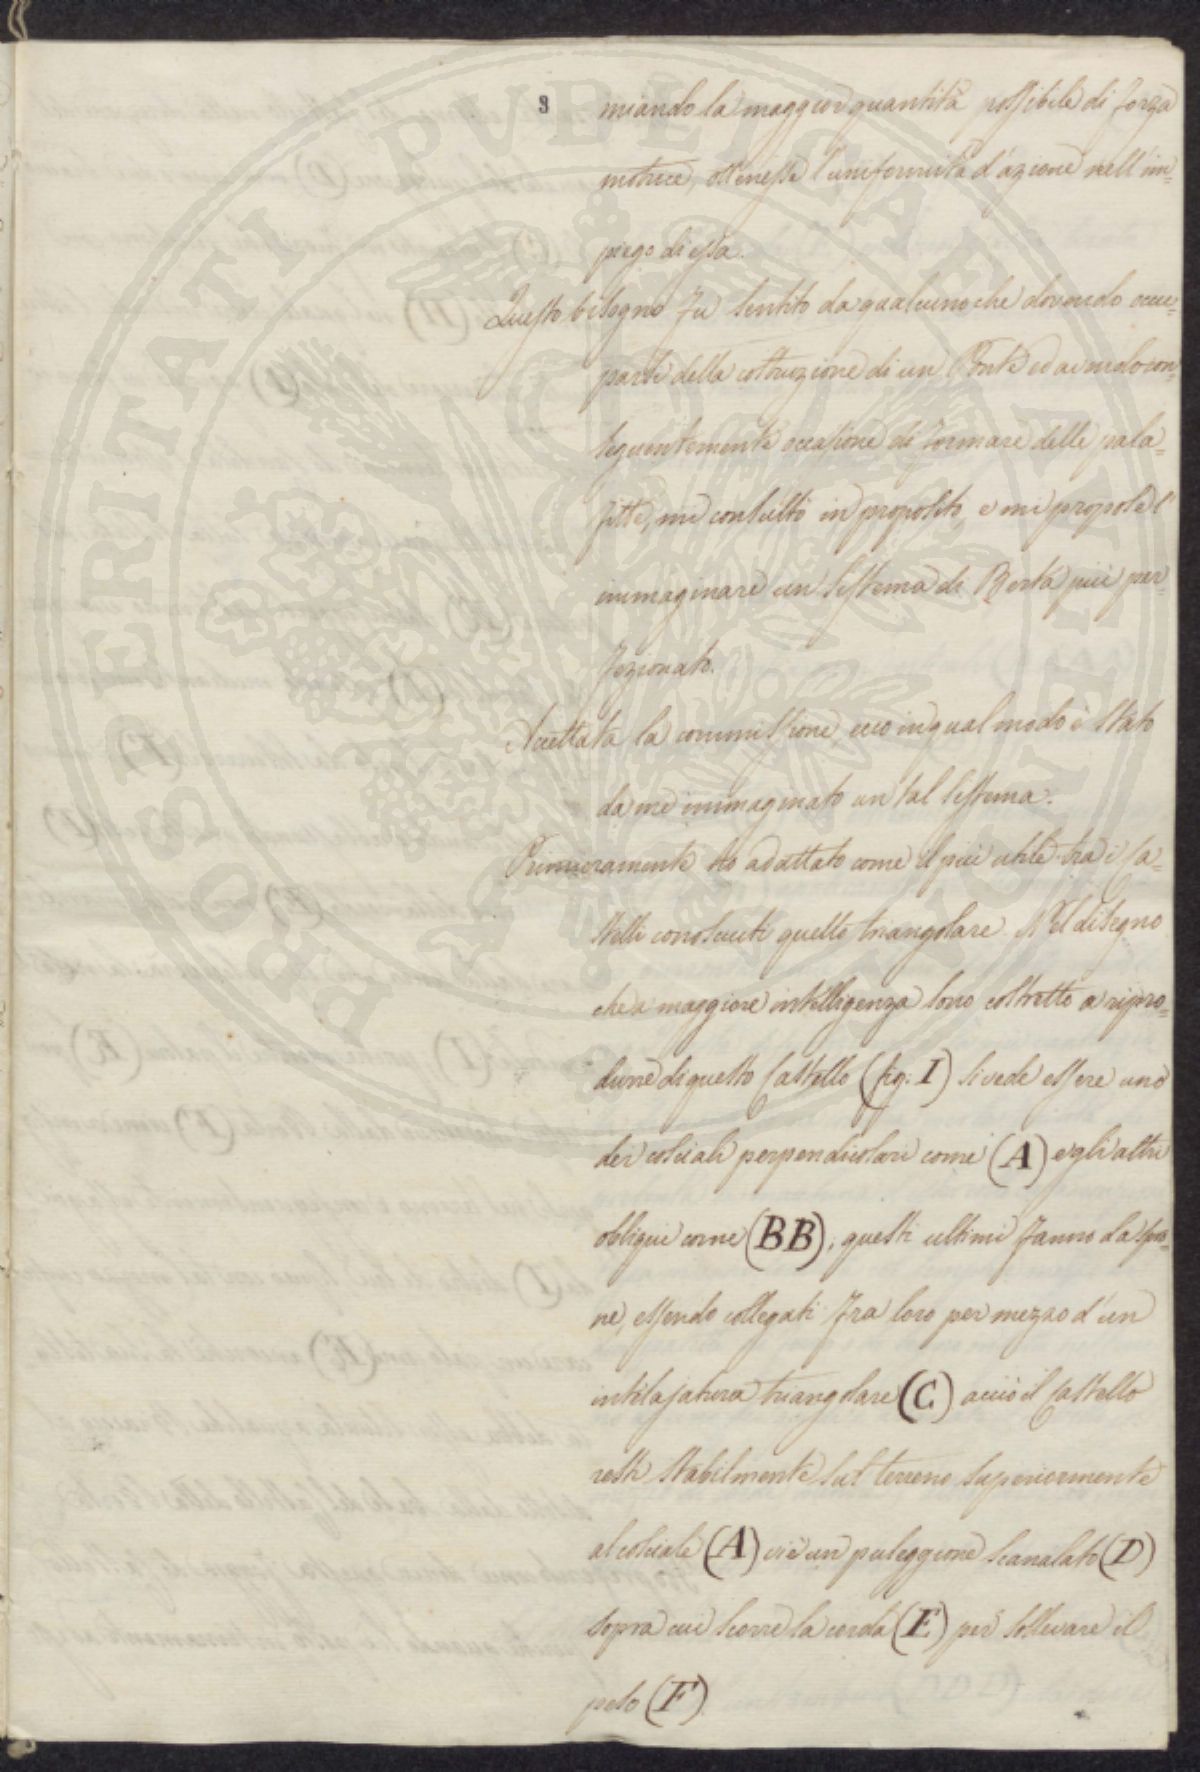 3
miando la maggior quantità possibile di forza
motrice, ottenesse l'uniformità d'azione nell'im=
piego di essa.
Questo bisogno fu sentito da qualcuno che dovendo occu=
parsi della costruzione di un Ponte ed avendo con=
seguentemente occasione di formare delle pala=
fitte, mi consultò in proposito, e mi propose l'
immaginare un sistema di Berta più per=
fezionato.
Accettata la commissione, ecco in qual modo è stato
da me immaginato un tal sistema.
Primieramente ho adattato come il più utile tra i Ca=
stelli conosciuti quello triangolare. Nel disegno
che a maggiore intelligenza sono costretto a ripro=
durre di questo Castello (fig: I) si vede essere uno
dei cosciali perpendicolari come (A) e gli altri
obliqui come (BB), questi ultimi fanno da spro=
ne, essendo collegati fra loro per mezzo d'un
intelajatura triangolare (C) acciò il Castello
resti stabilmente sul terreno, superiormente
al cosciale (A) vi è un puleggione scanalato (D)
sopra cui scorre la corda (E) per sollevare il
peso (F)
PROSPERITATI PUBLICAE AUGENDAE